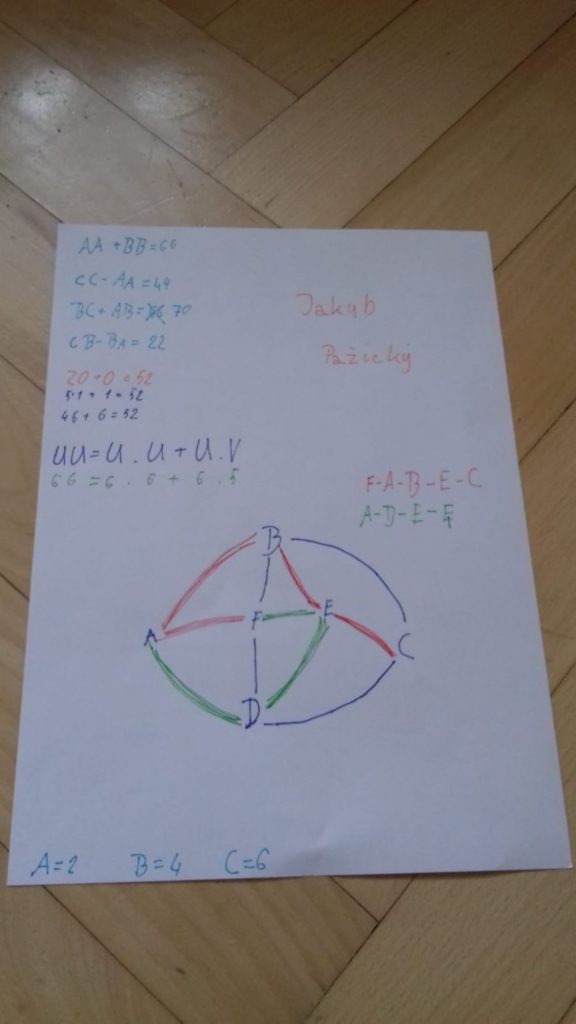 AA + BB = 66
CC - AA = 44
BC + AB = 70
CB - BA = 22
Jakub
Pažický
20 + 0 = 52
51 + 1 = 52
46 + 6 = 52
UU = U . U + U . V
66 = 6 . 6 + 6 . 5
F-A-B-E-C
A-D-E-F
B
A
F
E
C
D
A=2 B=4 C=6